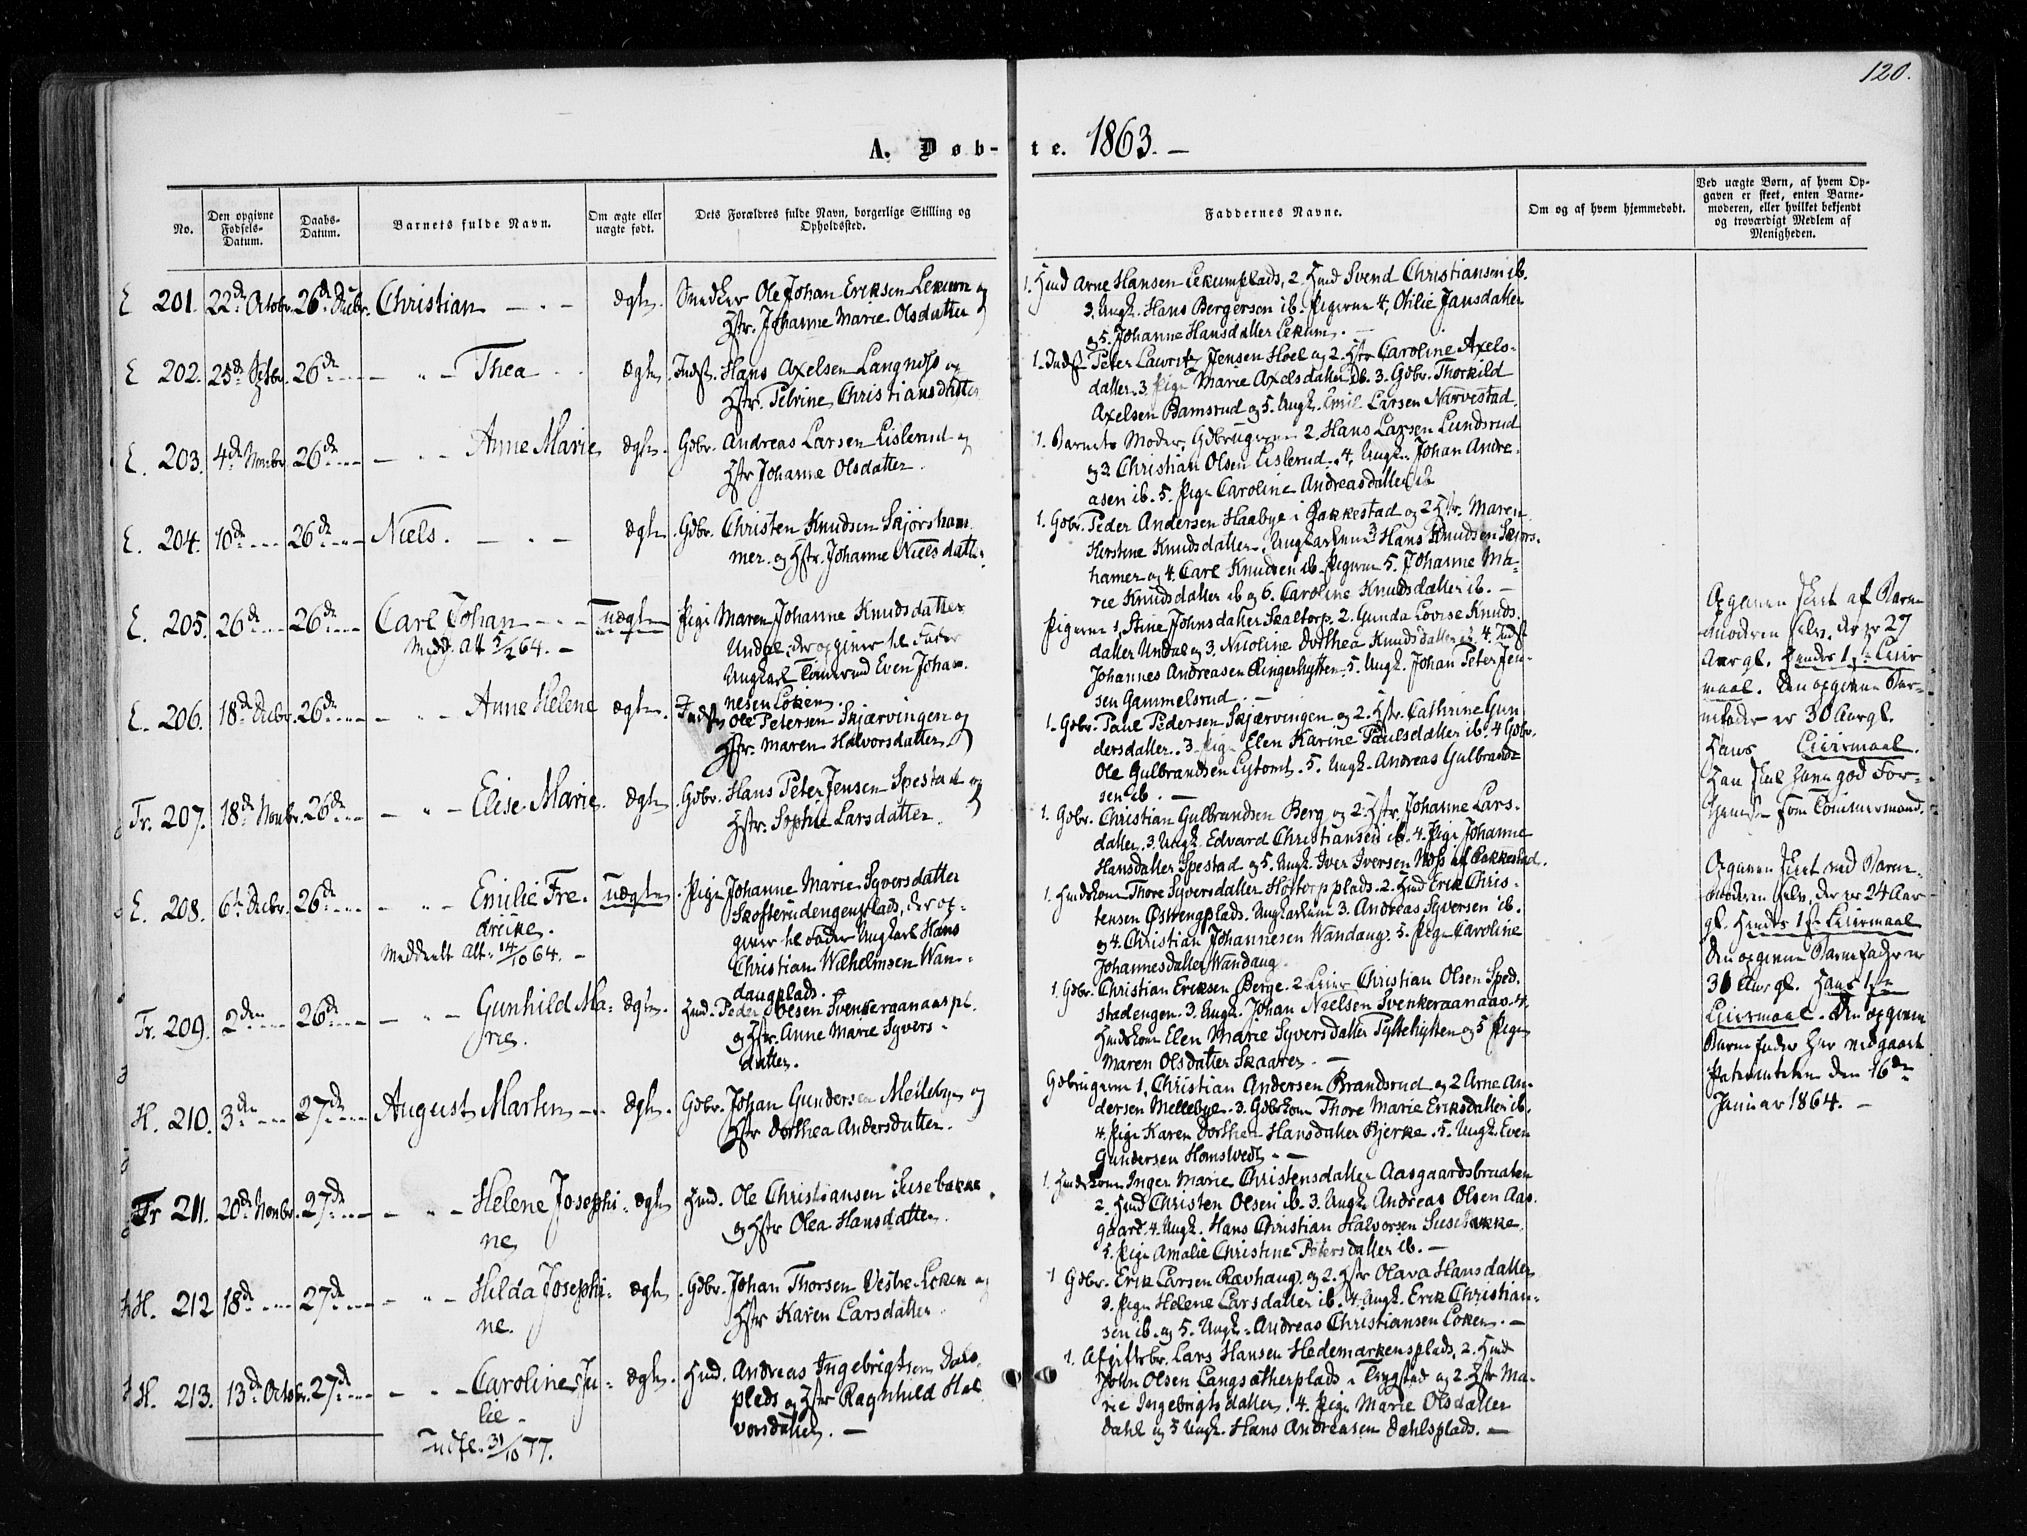 120.
A. Døb-
te. 1863. —
No.
Den opgivne
Fødsels-
Datum.
Daabs-
Datum.
Barnets fulde Navn.
Om ægte eller
uægte født.
Dets Forældres fulde Navn, borgerlige Stilling og
Opholdssted.
Faddernes Navne.
Om og af hvem hjemmedøbt.
Ved uægte Børn, af hvem Op-
gaven er skeet, enten Barne-
moderen, eller hvilket bekjendt
og troværdigt Medlem af
Menigheden.
E 201. 22de Octobr. 26de Decbr. Christian — . — ægte. Snedker Ole Johan Eriksen Lekum og
Hstr. Johanne Marie Olsdatter
1. Hmd Arne Hansen Lekumplads, 2. Hmd Svend Christiansen ib.
3. Ungk. Hans Bergersen ib. Pigerne 4. Otilie Jansdatter
og 5. Johanne Hansdatter Lekum. —
E 202. 25de 26de — " — Thea ægte. Indst. Hans Axelsen Langnæs og
Hstr. Petrine Christiansdatter
1. Indst Peter Lawritz Jensen Hoel og 2. Hstr Caroline Axels-
datter. 3 Pige Marie Axelsdatter ib. 3. Gdbr. Thorkild
Axelsen Bamsrud og 5. Ungk. Emil Larsen Narvestad.
E. 203. 4de Novbr. 26de — " — Anne Marie ægte. Gdbr. Andreas Larsen Lislerud og
Hstr Johanne Olsdatter.
1. Barnets Moder, Gdbrugerne 2. Hans Larsen Lundsrud
og 3. Christian Olsen Lislerud. 4. Ungk. Johan Andre-
asen ib. 5. Pige Caroline Andreasdatter ib
E. 204. 10de 26de Niels. — . — ægte Gdbr. Christen Knudsen Skjørsham
mer. og Hstr. Johanne Nielsdatter.
1. Gdbr. Peder Andersen Haabye i Rakkestad og 2 Hstr. Maren
Kerstine Knudsdatter. Ungkarlene 3 Hans Knudsen Skjørs-
hamer og 4. Carl Knudsen ib. Pigerne 5. Johanne Ma-
rie Knudsdatter ib og 6. Caroline Knudsdatter ib. —
E. 205. 26de 26de Carl Johan — uægte Pige Maren Johanne Knudsdatter
Undal, der opgiver til Fader
Ungkarl Tømmermd Even Johan-
nesen Løken.
Medd. Att 64. —
Pigerne 1. Stine Johnsdatter Skaltorp, 2. Gunda Lovise Knuds-
datter Undal og 3. Nicoline Dorthea Knudsdatter ib. 4. Indst
Johannes Andreasen Ringerhytten. 5. Ungk. Johan Peter Jen-
sen Gammelsrud. —
Opgaven skeet af Barne
moderen selv, der er 27
Aar gl. Hendes 1ste Leier
maal. Den opgivne Bar-
nefader er 30 Aar gl.
Hans Leiermaal.
Han skal have god For-
tjeneste som Tømmermand.
E. 206. 18de Decbr. 26de — " — Anne Helene ægte. Indst Ole Petersen Skjærvingen og
Hstr. Maren Halvorsdatter
1. Gdbr. Paul Pedersen Skjærvingen og 2. Hstr. Cathrine Gun
dersdatter. 3 Pige Elen Karine Paulsdatter ib. 4 Gdbr.
Ole Gulbrandsen Lytomt. 5. Ungk. Andreas Gulbrand-
sen ib. —
Tr. 207. 18de Novbr. 26de — " — Elise Marie. ægte Gdbr. Hans Peter Jensen Spestad og
Hstr. Sophie Larsdatter.
1. Gdbr. Christian Gulbrandsen Berg og 2. Hstr. Johanne Lars-
datter. 3. Ungk. Edvard Christiansen ib. 4. Pige Johanne
Hansdatter Spestad og 5. Ungk. Iver Iversen Næss af Rakkestad.
E. 208. 6te Decbr. 26de — " — Emilie Fre-
drike.
Meddeelt Att. 14/10 64. —
uægte. Pige Johanne Marie Syversdatter
Skofterudengenplads, der op-
giver til Fader Ungkarl Hans
Christian Wilhelmsen Wan-
daugplads.
1. Hmdskone Thore Syversdatter Hostorpplads. 2. Hmd Erik Chris-
tensen Østrengplads. Ungkarlene 3. Andreas Syversen ib.
og 4. Christian Johannesen Wandaug. 5. Pige Caroline
Johannesdatter Wandaug
Opgaven skeet ved Barne-
moderen selv, der er 24 Aar
gl. Hendes 1ste Leiermaal
Den opgivne Barnefader er
31 Aar gl. Hans 1ste
Leiermaal. Den opgivne
Barnefader har vedgaaet
Paterniteten den 16de
Januar 1864. —
Tr. 209. 2den 26de — " — Gunhild Ma-
rie.
ægte. Hmd. Peder Olsen Svenkeraanaaspl.
og Hstr. Anne Marie Syvers-
datter.
1. Gdbr. Christian Eriksen Berge. 2 Leier Christian Olsen Sped.
stadengen. 3. Ungk. Johan Nielsen Svenkeraanaas. 4.
Hmdskone Elen Marie Syversdatter Pyttehytten og 5 Pige
Maren Olsdatter Skaaren. —
H. 210. 3die 27de August Martin — ægte. Gdbr. Johan Gundersen Meilebye og
Hstr Dorthea Andersdatter.
Gdbrugerne 1. Christian Andersen Brandsrud og 2 Arne An-
dersen Mellebye. 3. Gdbrkone Thore Marie Eriksdatter ib.
4. Pige Karen Dorthea Hansdatter Bjerke. 5. Ungk. Even
Gundersen Homstvedt. —
Tr 211. 20de Novbr. 27de — " — Helene Josephi-
ne
ægte Hmd. Ole Christiansen Susebakke
og Hstr Olea Hansdatter.
1. Hmdskone Inger Marie Christensdatter Aasgaardsbraaten
2. Hmd Christen Olsen ib. 3. Ungk. Andreas Olsen Aas-
gaard. 4. Ungk. Hans Christian Halvorsen Susebakke.
5. Pige Amalie Christine Petersdatter ib. —
H. 212 18de 27de — " — Hilda Josephi-
ne.
ægte Gdbr. Johan Thorsen Vestre Løken og
Hstr Karen Larsdatter.
1 Gdbr. Erik Larsen Ravhaug og 2. Hstr Olava Hansdatter
3. Pige Helene Larsdatter ib. 4. Ungk. Erik Christian-
sen ib. og 5. Ungk. Andreas Christiansen Løken. —
H. 213. 13de Octobr. 27de — — Caroline Ju-
lie.
Udfl. 31/10 77.
ægte. Hmd. Andreas Ingebrigtsen Dals-
plads og Hstr Ragnhild Hal
vorsdatter. —
1. Afgiftsbr. Lars Hansen Hedemarkensplads, 2. Hmd
John Olsen Langsætherplads i Trygstad og 2. Hstr Ma-
rie Ingebrigtsdatter. 4. Pige Marie Olsdatter
Dahl og 5 Ungk. Hans Andreasen Dahlsplads. —